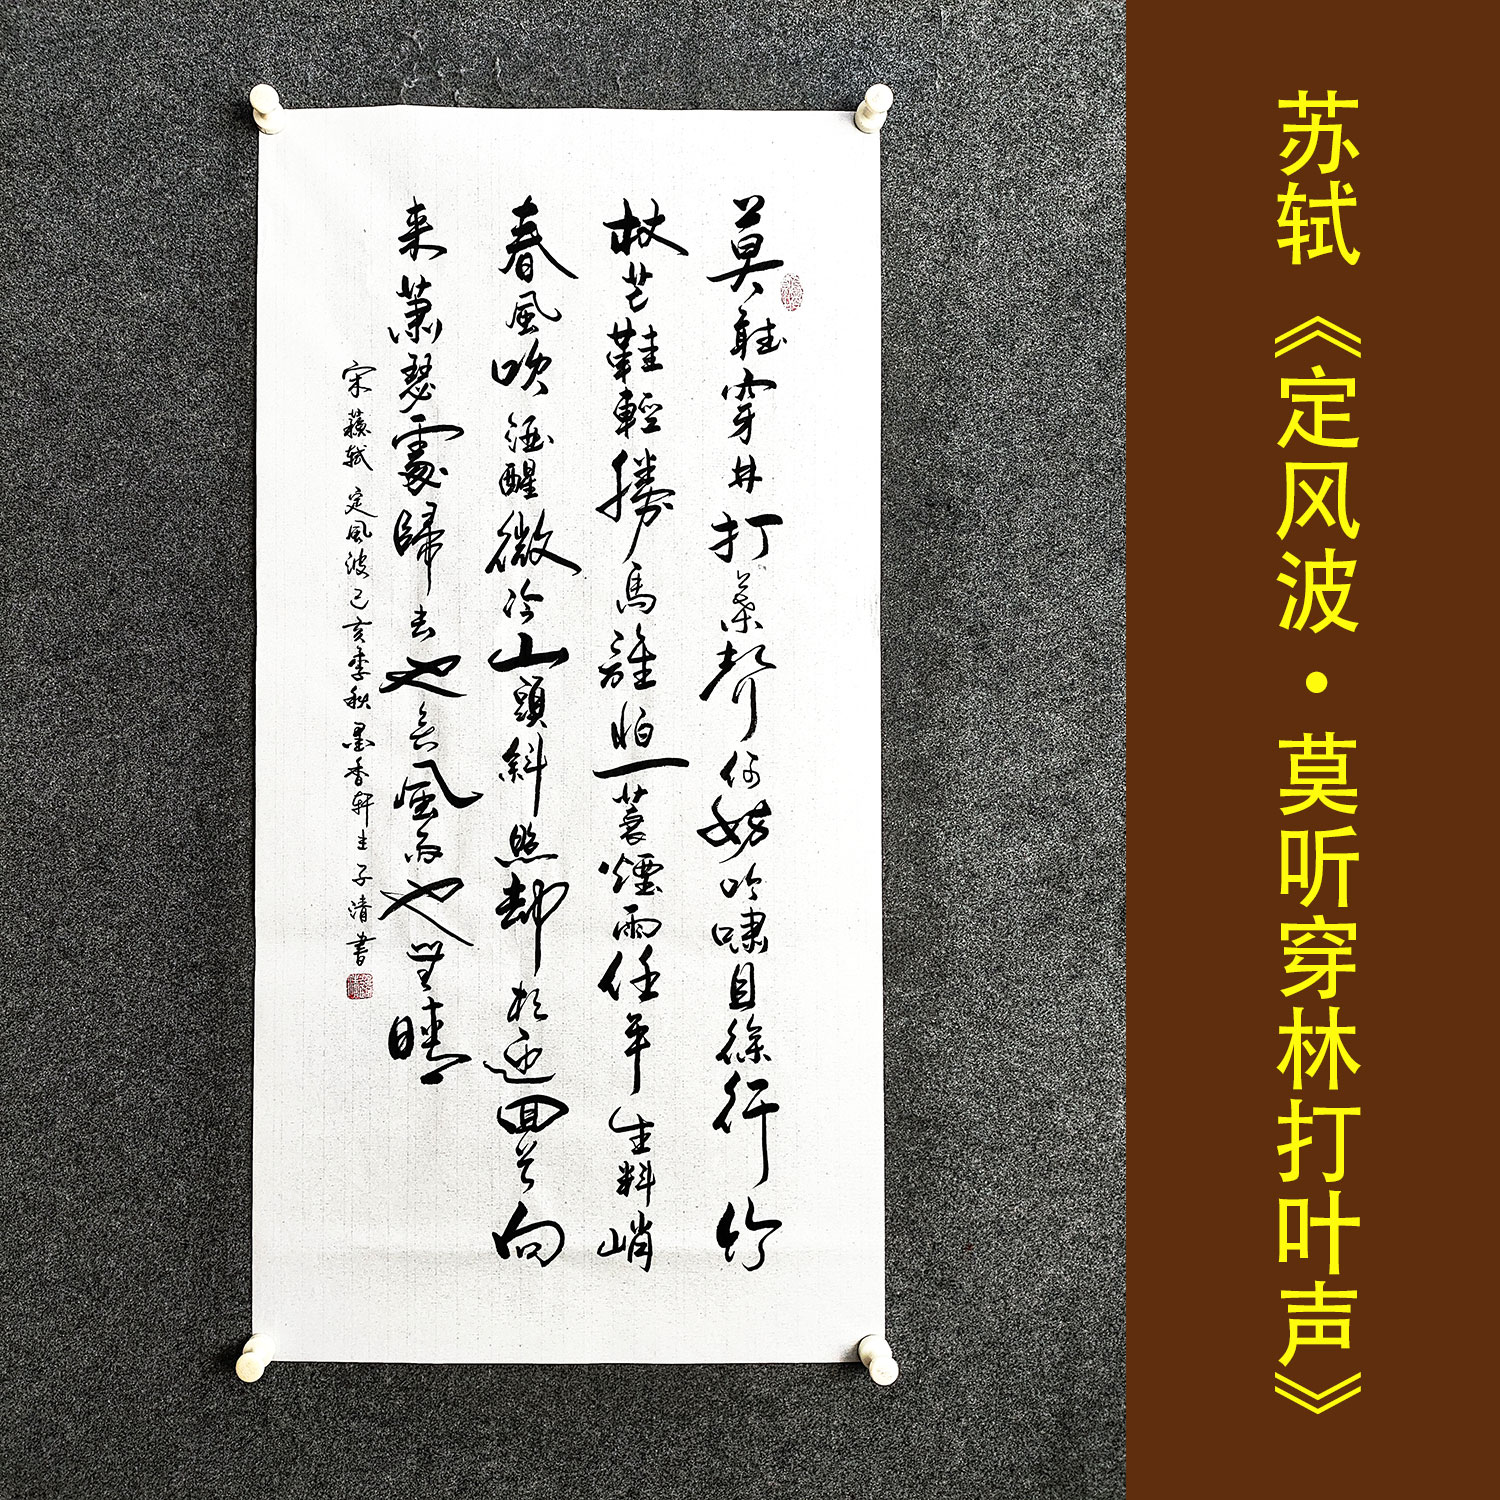 苏轼《定风波·莫听穿林打叶声》
莫聽穿林打葉聲何妨吟嘯且徐行竹
杖芒鞋輕勝馬誰怕一蓑煙雨任平生料峭
春風吹酒醒微冷山頭斜照却相迎回首向
来蕭瑟處歸去也無風雨也無晴
宋蘇軾定風波己亥季秋墨香軒主子清書